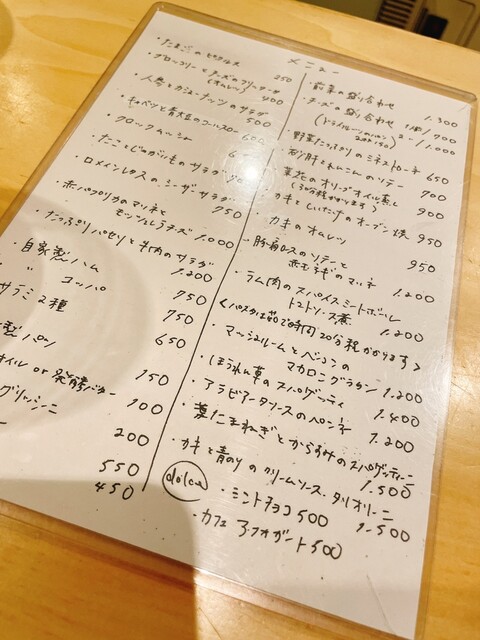 メニュー
・たまごのピクルス 250
・ブロッコリーとチーズのフリッタータ
(オムレツ) 400
・人参とカシューナッツのサラダ 500
・キャベツと青大豆のコールスロー 600
・クロックムッシュー
・たことじゃがいものサラダ
・ロメインレタスのシーザーサラダ 750
・赤パプリカのマリネと
モッツァレラチーズ 1.000
・たっぷりパセリと牛肉のサラダ 1.200
・自家製ハム 750
・〃 コッパ 750
サラミ2種 650
製パン 150
オイル or 発酵バター 100
グリッシーニ 200
550
450
・前菜の盛り合わせ 1.300
・チーズの盛り合わせ
・野菜たっぷりのミネストローネ 650
・砂肝とれんこんのソテー 700
・菜花のオリーブオイル蒸し 900
(30分程かかります)
・カキとしいたけのオーブン焼 950
・カキのオムレツ 950
・豚肩ロースのソテーと
赤玉ネギのマリネ 1.200
・ラム肉のスパイスミートボール
トマトソース煮 1.200
<パスタは茹で時間20分程かかります>
・マッシュルームとベーコンの
マカロニグラタン 1.200
・ほうれん草のスパゲッティ 1.400
・アラビアータソースのペンネ 1.200
・葉たまねぎとからすみのスパゲッティーニ 1.500
・カキと青のりのクリームソース、タリオリーニ 1.500
dolce
・ミントチョコ 500
・カフェアフォガート 500